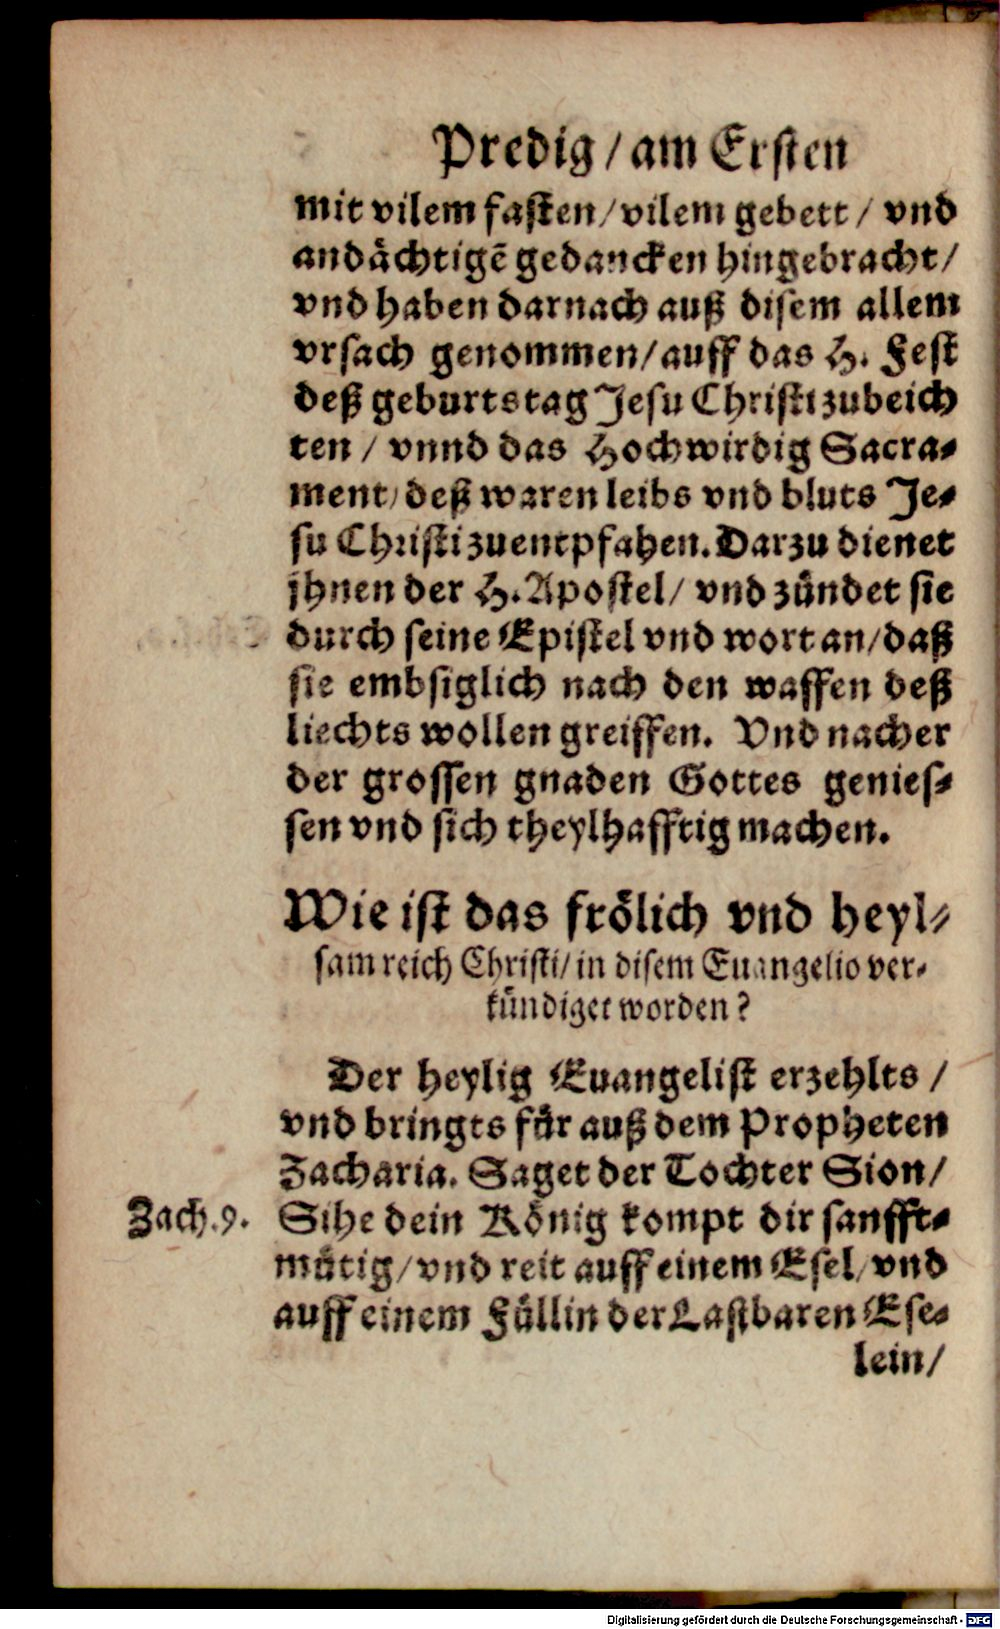 Predig / am Ersten
mit vilem fasten / vilem gebett / vnd
andächtigē gedancken hingebracht /
vnd haben darnach auß disem allem
vrsach genommen / auff das H. Fest
deß geburtstag Jesu Christi zubeich
ten / vnnd das Hochwirdig Sacra-
ment / deß waren leibs vnd bluts Je-
su Christi zuentpfahen. Darzu dienet
jhnen der H. Apostel / vnd zündet sie
durch seine Epistel vnd wort an / daß
sie embsiglich nach den waffen deß
liechts wollen greiffen. Vnd nacher
der grossen gnaden Gottes genies-
sen vnd sich theylhafftig machen.
Wie ist das frölich vnd heyl-
sam reich Christi / in disem Euangelio ver-
kündiget worden?
Der heylig Euangelist erzehlts /
vnd bringts für auß dem Propheten
Zacharia. Saget der Tochter Sion /
Zach. 9.
Sihe dein König kompt dir sanfft-
mütig / vnd reit auff einem Esel / vnd
auff einem Füllin der Lastbaren Ese-
lein /
Digitalisierung gefördert durch die Deutsche Forschungsgemeinschaft - DFG